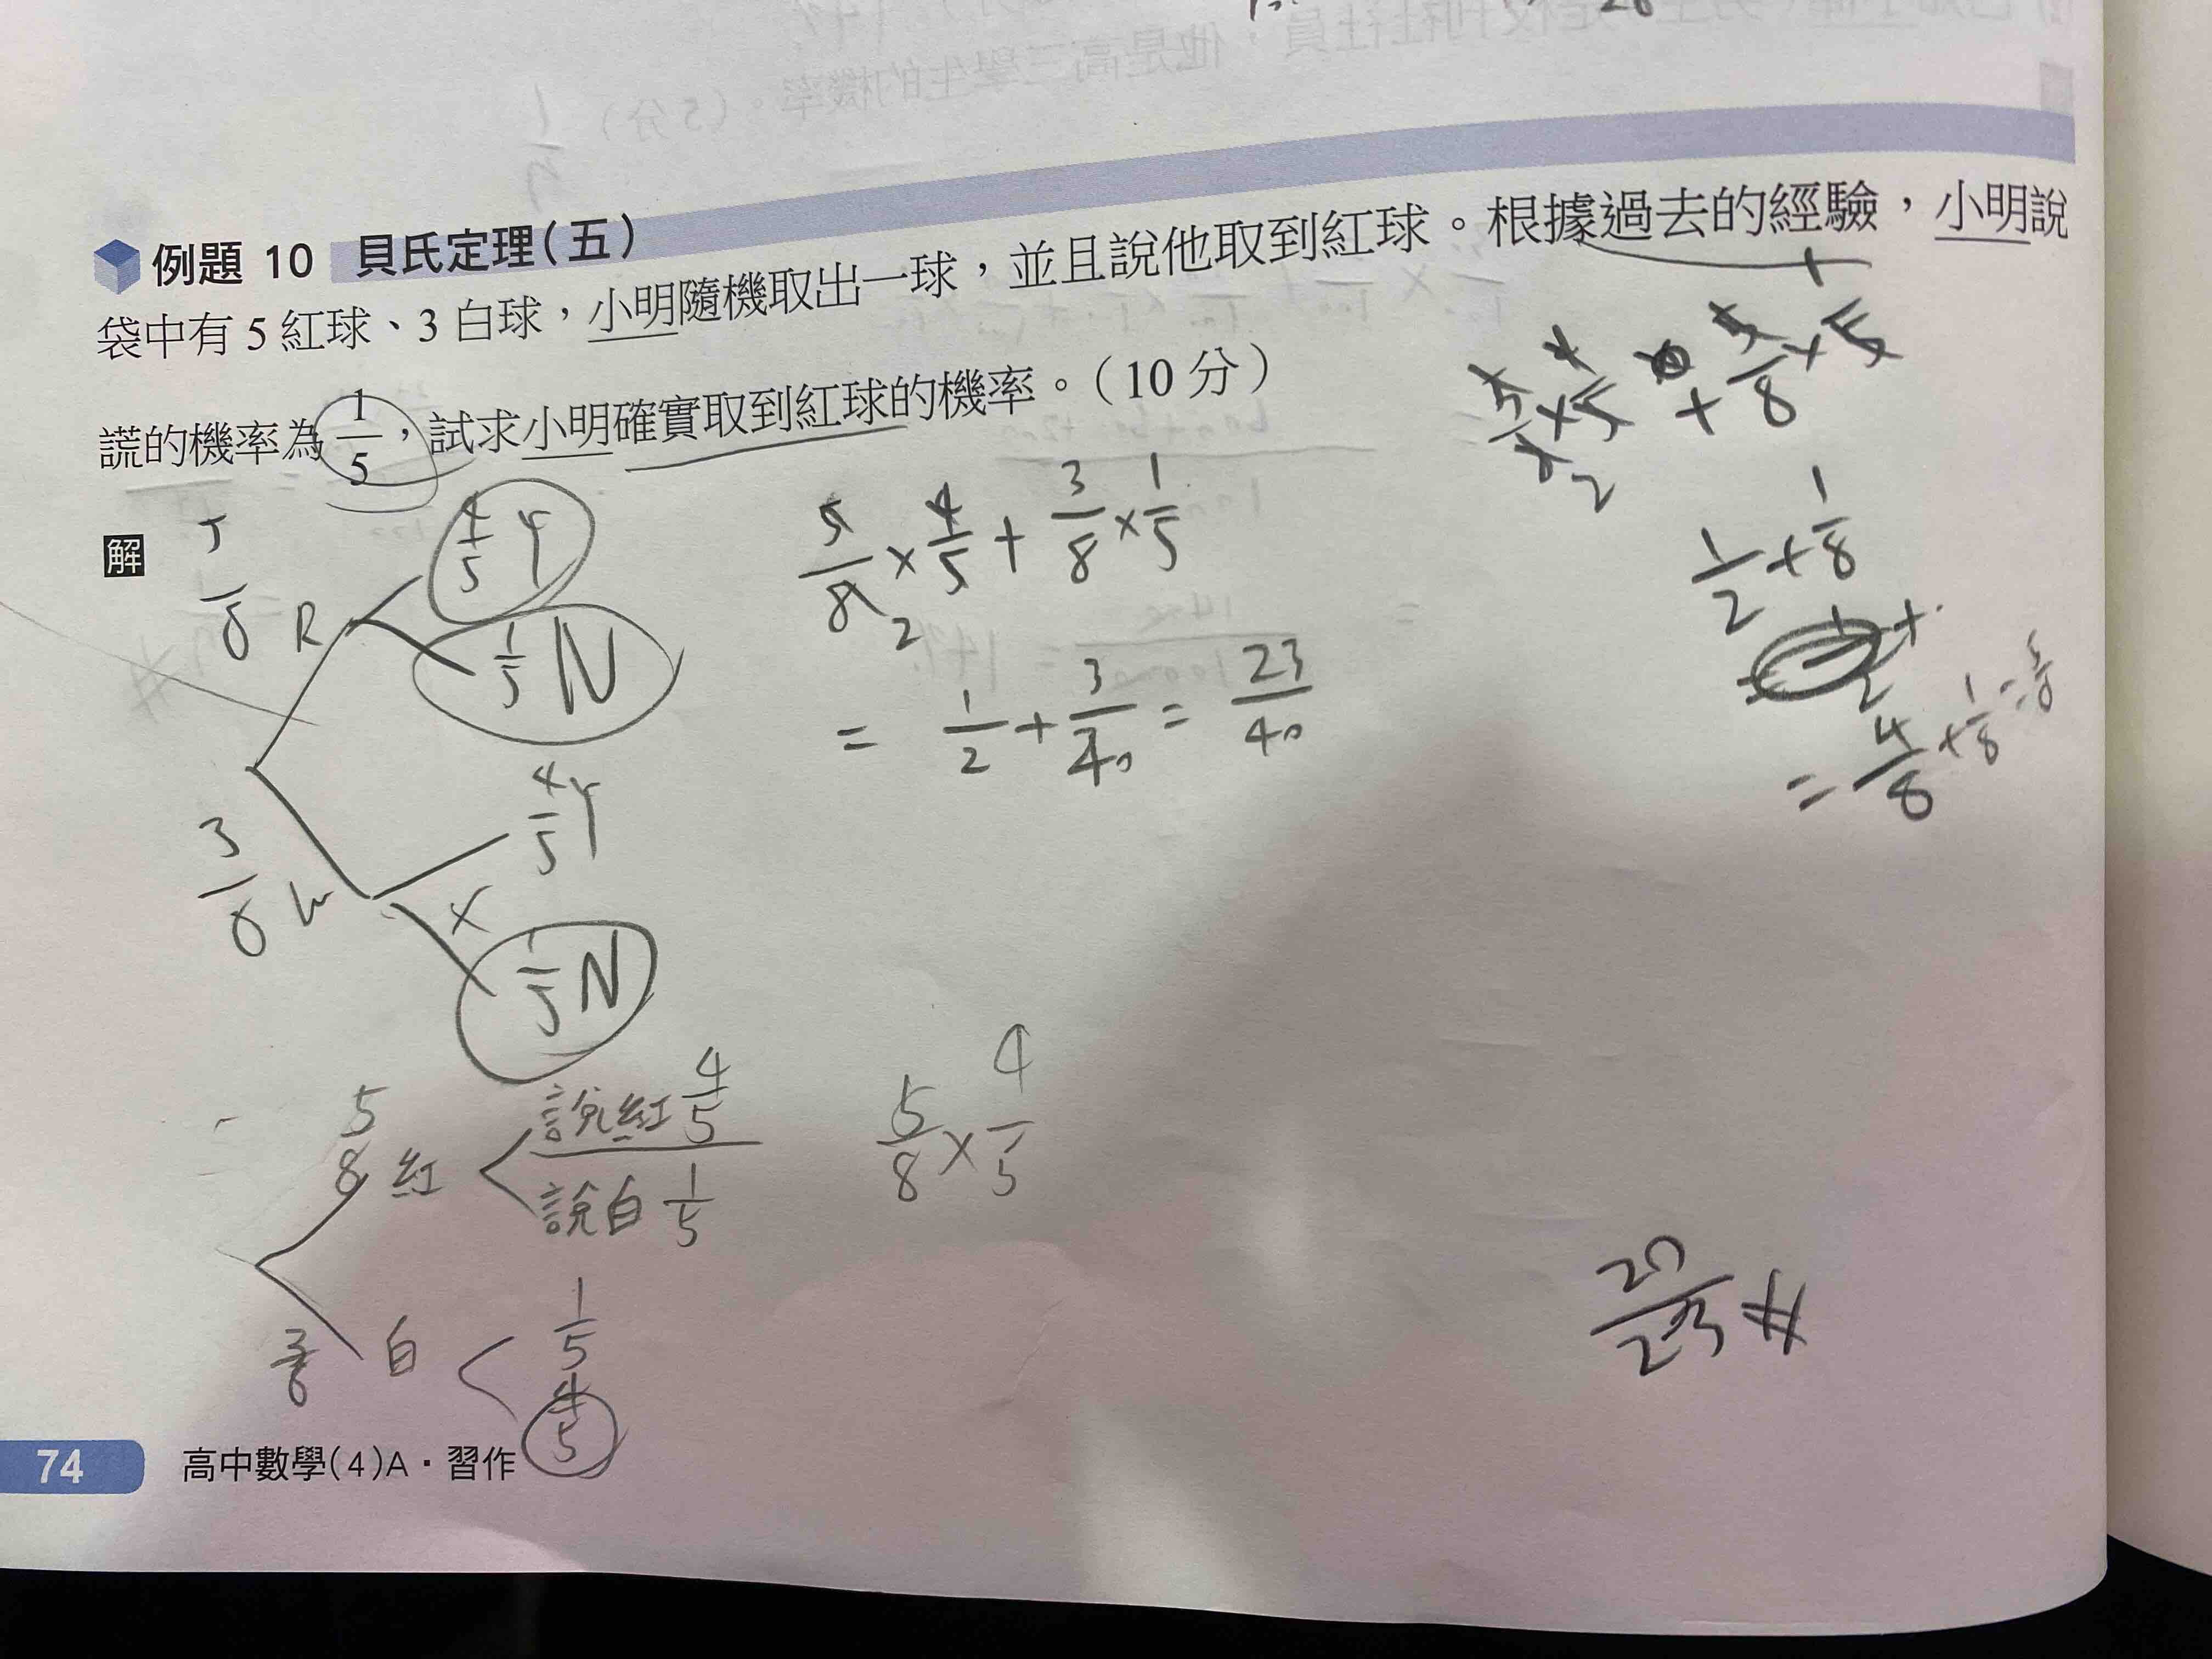 例題 10 貝氏定理(五)
袋中有 5 紅球、3 白球，小明隨機取出一球，並且說他取到紅球。根據過去的經驗，小明說
謊的機率為 1/5，試求小明確實取到紅球的機率。(10 分)
解
5/8 R
4/5 Y
1/5 N
3/8 W
4/5 Y
1/5 N
5/8 × 4/5 + 3/8 × 1/5
= 1/2 + 3/40 = 23/40
1/2 + 1/8
= 4/8 + 1/8 = 5/8
5/8 紅
說紅 4/5
說白 1/5
3/8 白
1/5
4/5
5/8 × 4/5
20/23 #
74 高中數學(4)A・習作